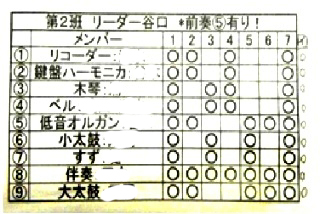 第2班 リーダー谷口 *前奏⑤有り!
メンバー 1 2 3 4 5 6 7
① リコーダー ○ ○ ○ ○
② 鍵盤ハーモニカ ○ ○ ○ ○
③ 木琴 ○ ○ ○ ○
④ ベル ○ ○ ○ ○
⑤ 低音オルガン ○ ○ ○ ○ ○
⑥ 小太鼓 ○ ○ ○ ○
⑦ すず ○ ○ ○ ○
⑧ 伴奏 ○ ○ ○ ○ ○ ○ ○
⑨ 大太鼓 ○ ○ ○ ○ ○